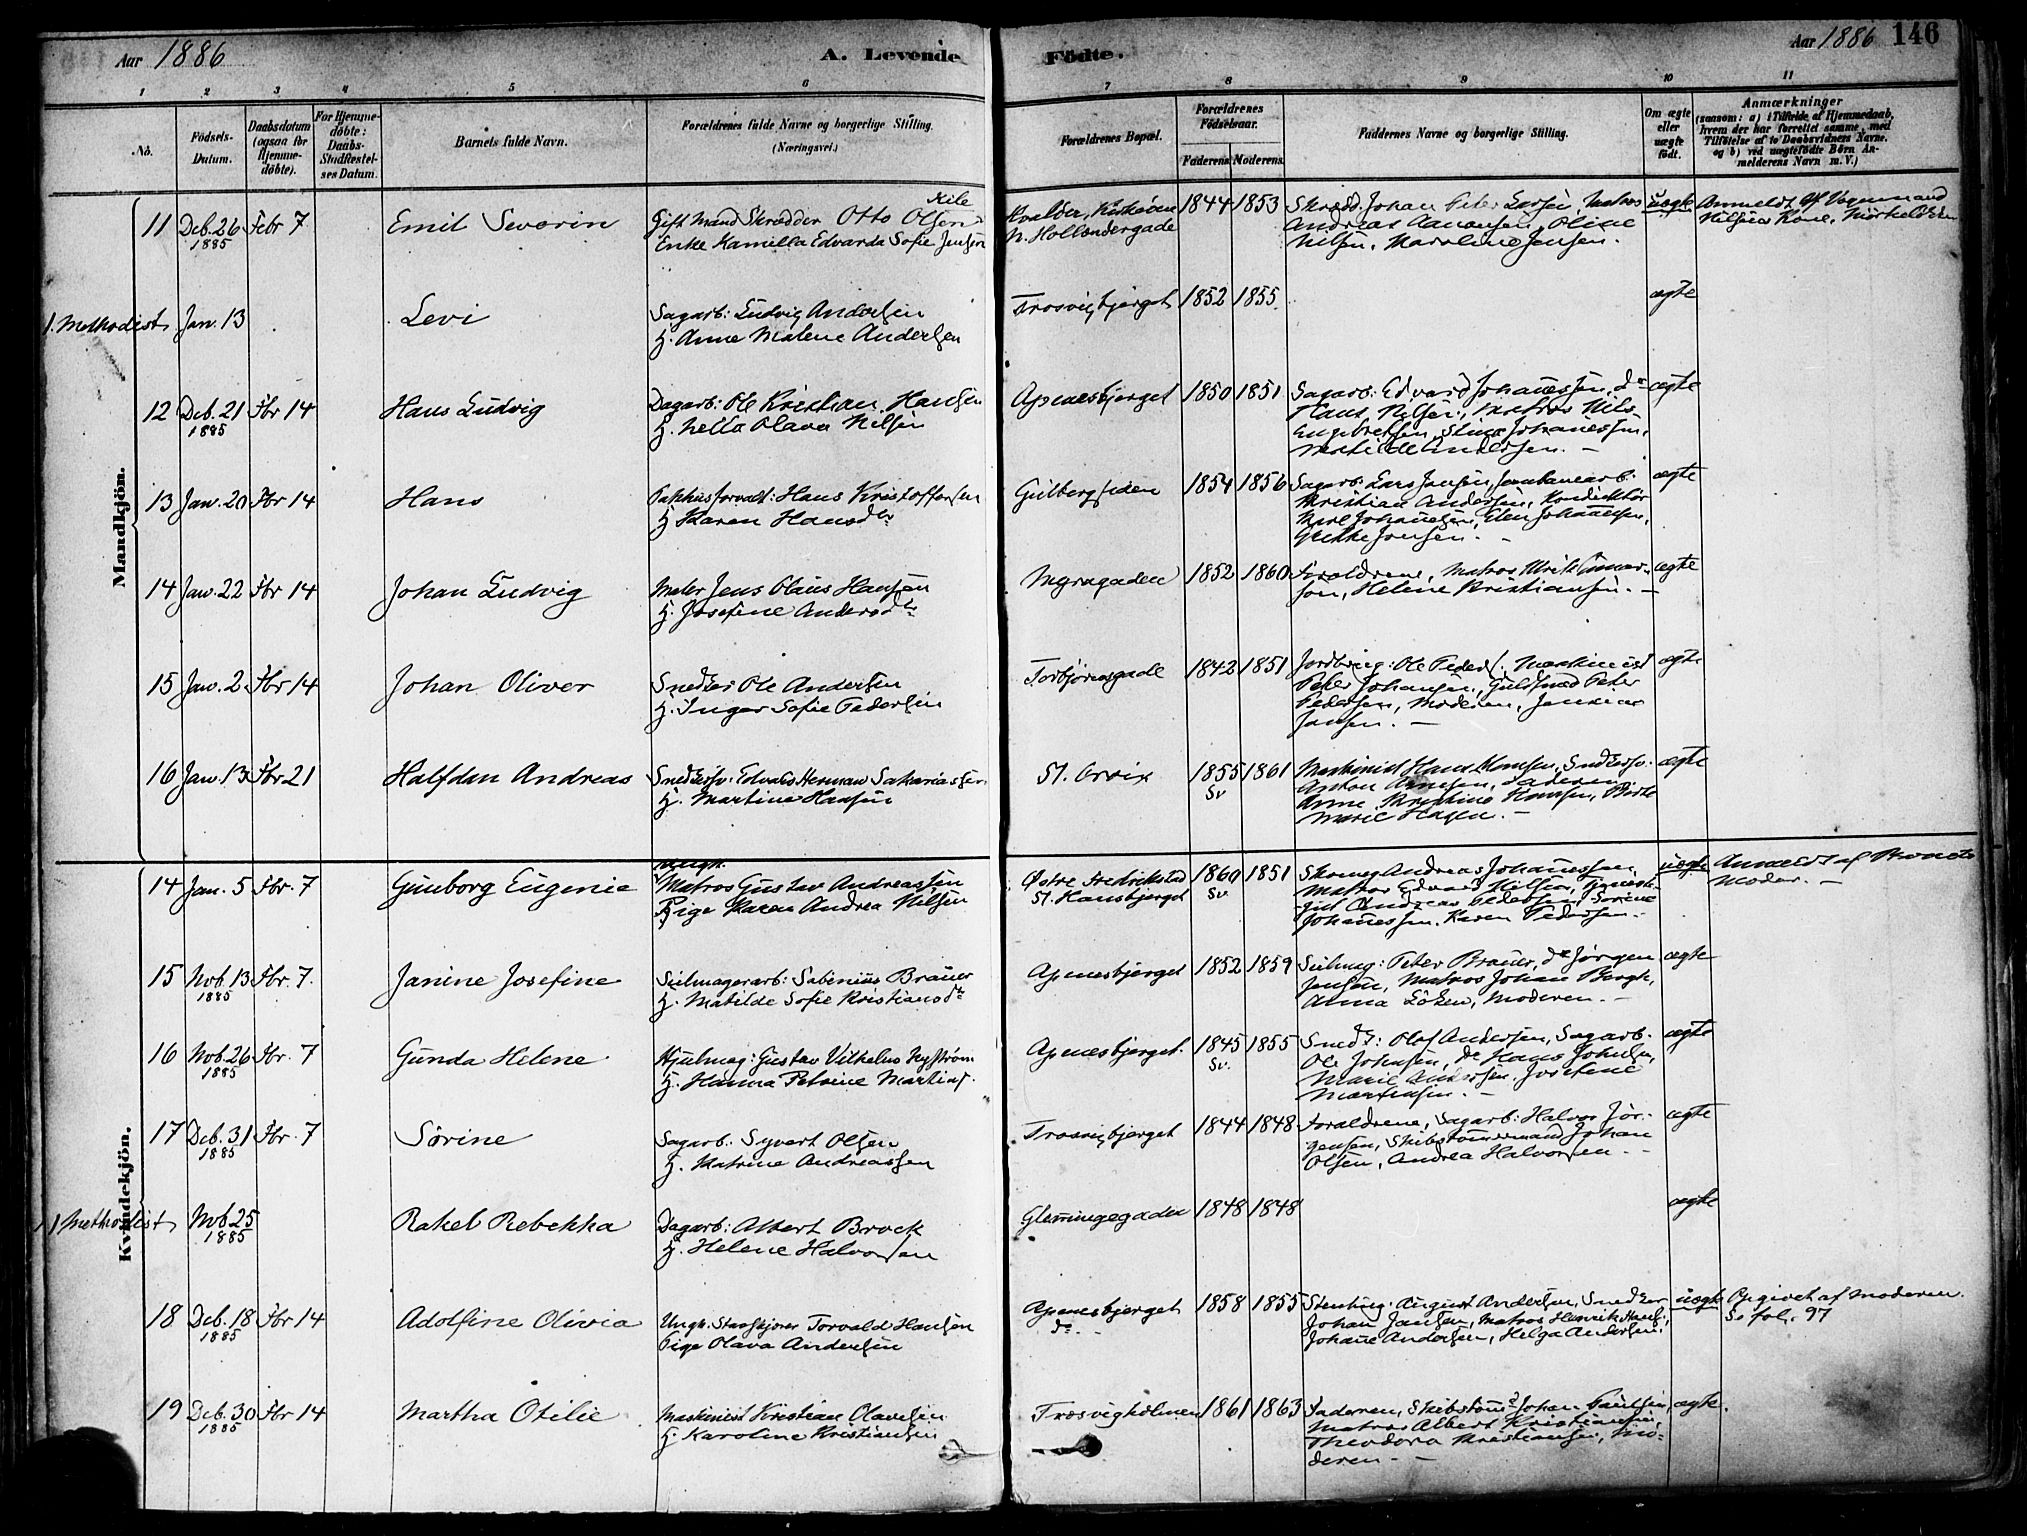 Aar 1886
A. Levende
Födte.
Aar 1886 146
1 2 3 4 5 6 7 8 9 10 11
No.
Födsels-
Datum.
Daabsdatum
(ogsaa for
Hjemme-
døbte).
For Hjemme-
døbte:
Daabs-
Stadfæstel-
ses Datum.
Barnets fulde Navn.
Forældrenes fulde Navne og borgerlige Stilling.
(Næringsvei.)
Forældrenes Bopæl.
Forældrenes
Födselsaar.
Faderens Moderens.
Faddernes Navne og borgerlige Stilling.
Om ægte
eller
uægte
født.
Anmærkninger
(saasom: a) i Tilfælde af Hjemmedaab,
hvem der har forrettet samme, med
Tilføielse af to Daabsvidners Navne.
og b) ved uægtefødte Børn An-
melderens Navn m. V.)
Mandkjön.
11 Deb. 26 Febr 7 Emil Severin Gift Mand Skrædder Otto Olsen
1885 Enke Kamilla Edvarda Sofie Jensen
N. Hollændergade
1844 1853 Skræd. Johan Peter Larsen, Matros
Andreas Aanonsen, Oline
Nilsen, Karoline Jensen.
uægte Anmeldt af Vognmand
Nilsens Kone,
1 Methodist Jan. 13 Levi Sagarb: Ludvig Andersen
H. Anne Malene Andersen
Trosvigbjerget 1852 1855 ægte
12 Deb. 21 Fbr 14 Hans Ludvig Dagarb: Ole Kristian Hansen
1885 H. Nella Olava Nilsen
Apenesbjerget 1850 1851 Sagarb: Edvard Johannessen, do
Hans Nilsen, Matros Nils
Engebretsen, Stina Johanessen,
Matilde Andersen. –
ægte
13 Jan. 20 Fbr 14 Hans Pakhusforvalt: Hans Kristoffersen
H Karen Hansdr
Gulbergsiden 1854 1856 Sagarb: Lars Jensen, Jernbanearb:
Kristian Andersen, Konduktør
Karl Johanesen, Elen Johannesen,
Grethe Jensen. –
ægte
14 Jan. 22 Fbr 14 Johan Ludvig Maler Jens Olaus Hansen
H. Josefine Andersdr
Myragaden 1852 1860 Forældrene, Matros
Helene Kristiansen. –
ægte
15 Jan. 2 Fbr 14 Johan Oliver Snedker Ole Andersen
H. Inger Sofie Pedersen
Torbjørnsgade 1842 1851 Jordbrug: Ole Peders. Maskinist
Peter Johansen, Guldsmed Peter
Pedersen, Moderen,
Jansen. –
ægte
16 Jan. 13 Fbr 21 Halfdan Andreas Snedkersv: Edvard Herman Sakariassen
H. Martine Hansen
St. Orvix 1855 1861
Sv
Maskinist Hans Hansen, Snedkersv.
Anton Arnesen, Faderen
Anne Kristine Hansen, Birte
Marie Hagen. –
ægte
Kvindekjön.
14 Jan. 5 Fbr. 7 Gunborg Eugenie Ungk.
Matros Gustav Andreassen
Pige Karen Andrea Nilsen
Østre Fredrikstad 1860 1851
St. Hansbjerget Sv.
Skomag Andreas Johannessen,
Matros Edvard Nilsen,
Andreas Pedersen, Sorine
Johannessen. Karen Pedersen. –
uægte Anmeldt af Barnets
Moder. –
15 Nob. 13 Fbr. 7. Janine Josefine Seilmagerarb: Sabinius Brauer
1885 H. Matilde Sofie Kristiansdr
Apenesbjerget 1852 1859 Seilmag: Peter Brauer, do Jørgen
Jensen, Matros Johan Bergh,
Anna Löken, Moderen. –
ægte
16 Nob. 26 Fbr. 7 Gunda Helene Hjulmag: Gustav Vilhelm Nystrøm
1885 H. Hanna Petrine Martins.
Apenesbjerget. 1845 1855
Sv.
Smed: Olof Andersen, Sagarb.
Ole Johnsen, do Hans Johnsen,
Marie Andersen, Josefine
Martinsen. –
ægte
17 Deb. 31 Fbr. 7 Sörine Sagarb: Syvert Olsen
1885 H. Katrine Andreassen
Trosvigbjerget 1844 1848 Forældrene, Sagarb: Halvor Jør-
gensen, Skibstömmermand Johan
Olsen, Andrea Halvorsen. –
ægte
1 Methodist Nob. 25 Rakel Rebekka Dagarb: Albert Brock
1885 H. Helene Halvorsen
Glemmingegaden 1848 1848 ægte
18 Deb. 18 Fbr 14 Adolfine Olivia Ungk. Torvald Hansen
1885 Pige Olava Andersen
Apenesbjerget 1858 1855
do –
Stenhug: August Andersen, Snedker
Johan Jansen, Matros Henrik Hans.,
Johane Andersen, Helga Andersen.
uægte Opgivet af Moderen.
Se fol. 97
19 Deb. 30 Fbr 14 Martha Otilie Maskinist Kristian Olavesen
1885 H Karoline Kristiansen
Trosvigholmen 1861 1863 Faderen, Skibstöm: Johan Paulsen,
Matros Albert Kristiansen,
Theodora Kristiansen, Mo-
deren. –
ægte.